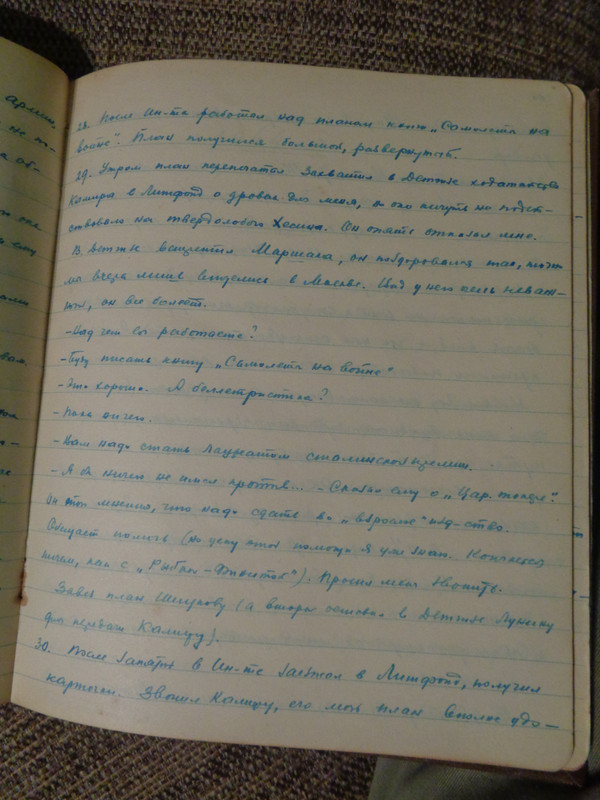 армии,
не пи-
28. После Ин-та работал над планом книги „Самолеты на
войне". План получился большой, развернутый.
29. Утром план перепечатал. Захватил в Детгизе ходатайство
в Литфонд о дровах для меня, но оно ничуть не подей-
ствовало на твердолобого Хесина. Он опять отказал мне.
В Детгизе встретил Маршака, он поздоровался так, точно
мы вчера лишь виделись в Москве. Вид у него очень неваж-
ный, он все болеет.
- Над чем вы работаете?
- Буду писать книгу „Самолеты на войне"
- Это хорошо. А беллетристика?
- Пока ничего.
- Вам надо стать лауреатом сталинской премии.
- Я бы ничего не имел против... - Сказал ему о „Цар. токаре".
Он того мнения, что надо сдать в „взрослое" изд-ство.
Обещает помочь (но цену этой помощи я уже знаю. Кончится
ничем, как с „Рыбкой-Финитой"). Просил меня звонить.
Завез план Шиукову (а второй оставил в Детгизе Лунину
для передачи Камиру).
30. После занятий в Ин-те заезжал в Литфонд, получил
карточки. Звонил Камиру, его мой план вполне удо-